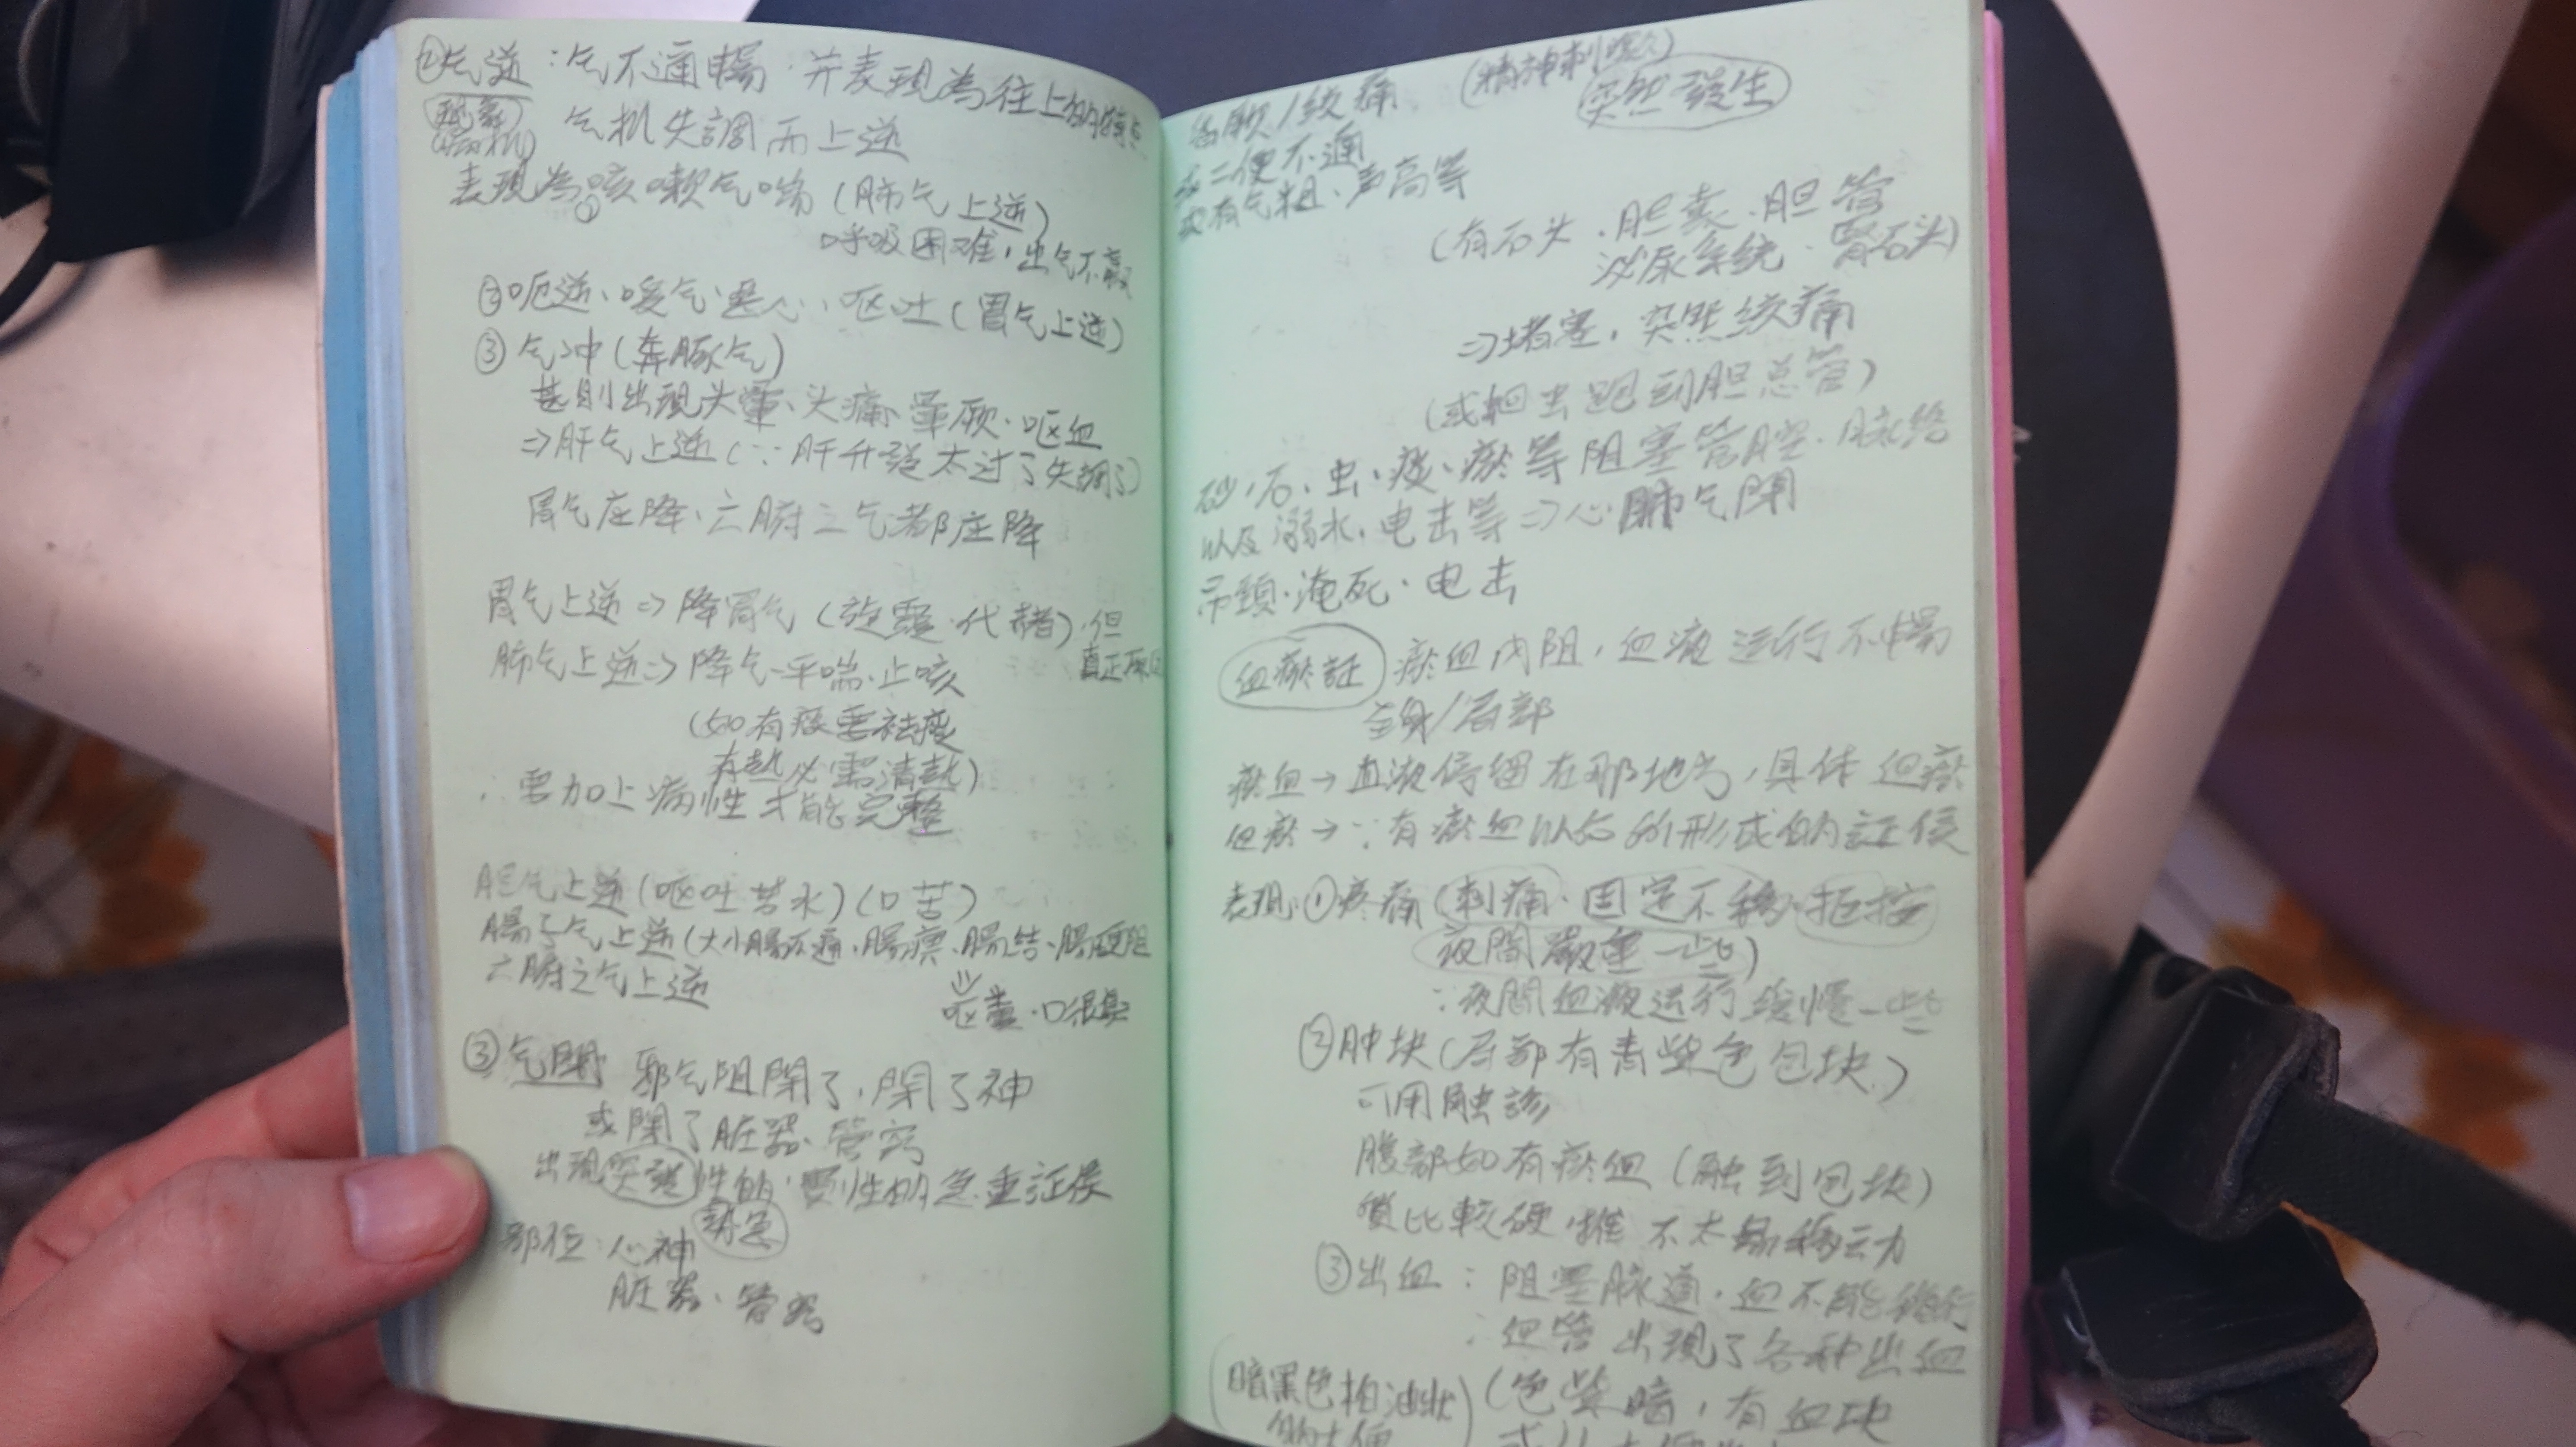 ②气逆：气不通暢，并表現為往上的特点
(現象)
(病机) 气机失調而上逆
表現為①咳嗽气喘（肺气上逆）
呼吸困难，出气不
②呃逆、噯气、恶心、呕吐（胃气上逆）
③气冲（奔豚气）
甚則出現头暈、头痛、暈厥、呕血
⇒肝气上逆（∵肝升發太过了失調了）
胃气应降、六腑之气都应降
胃气上逆⇒降胃气（旋覆、代赭），但
真正
肺气上逆⇒降气平喘、止咳
（如有痰要祛痰
有热必需清热）
∴要加上病性才能完整
胆气上逆（呕吐苦水）（口苦）
腸子气上逆（大小腸不通、腸痹、腸結、腸梗阻
六腑之气上逆
呕粪、口很臭
③气閉 邪气阻閉了，閉了神
或閉了脏器、管窍
出現突發性的，實性的急重証候
部位：心神
脏器、管窍
（精神刺激）
突然發生
昏厥/绞痛
或二便不通
或有气粗、声高等
（有石头、胆囊、胆管
泌尿系统、腎石头）
⇒堵塞，突然绞痛
（或蛔虫跑到胆总管）
砂、石、虫、痰、瘀等阻塞管腔、脉络
以及溺水、电击等⇒心肺气閉
吊頸、淹死、电击
血瘀証 瘀血内阻，血液运行不暢
全身/局部
瘀血→血液停留在那地方，具体血瘀
血瘀→∵有瘀血以后所形成的証侯
表現：①疼痛（刺痛、固定不移、拒按
夜間嚴重一些）
∵夜間血液运行缓慢一些
②肿块（局部有青紫色包块）
可用触診
腹部如有瘀血（触到包块）
質比較硬，推不太易移动
③出血：阻塞脉道，血不能循行
∴血管出現了各种出血
（色紫暗，有血块
（暗黑色柏油狀
的大便）